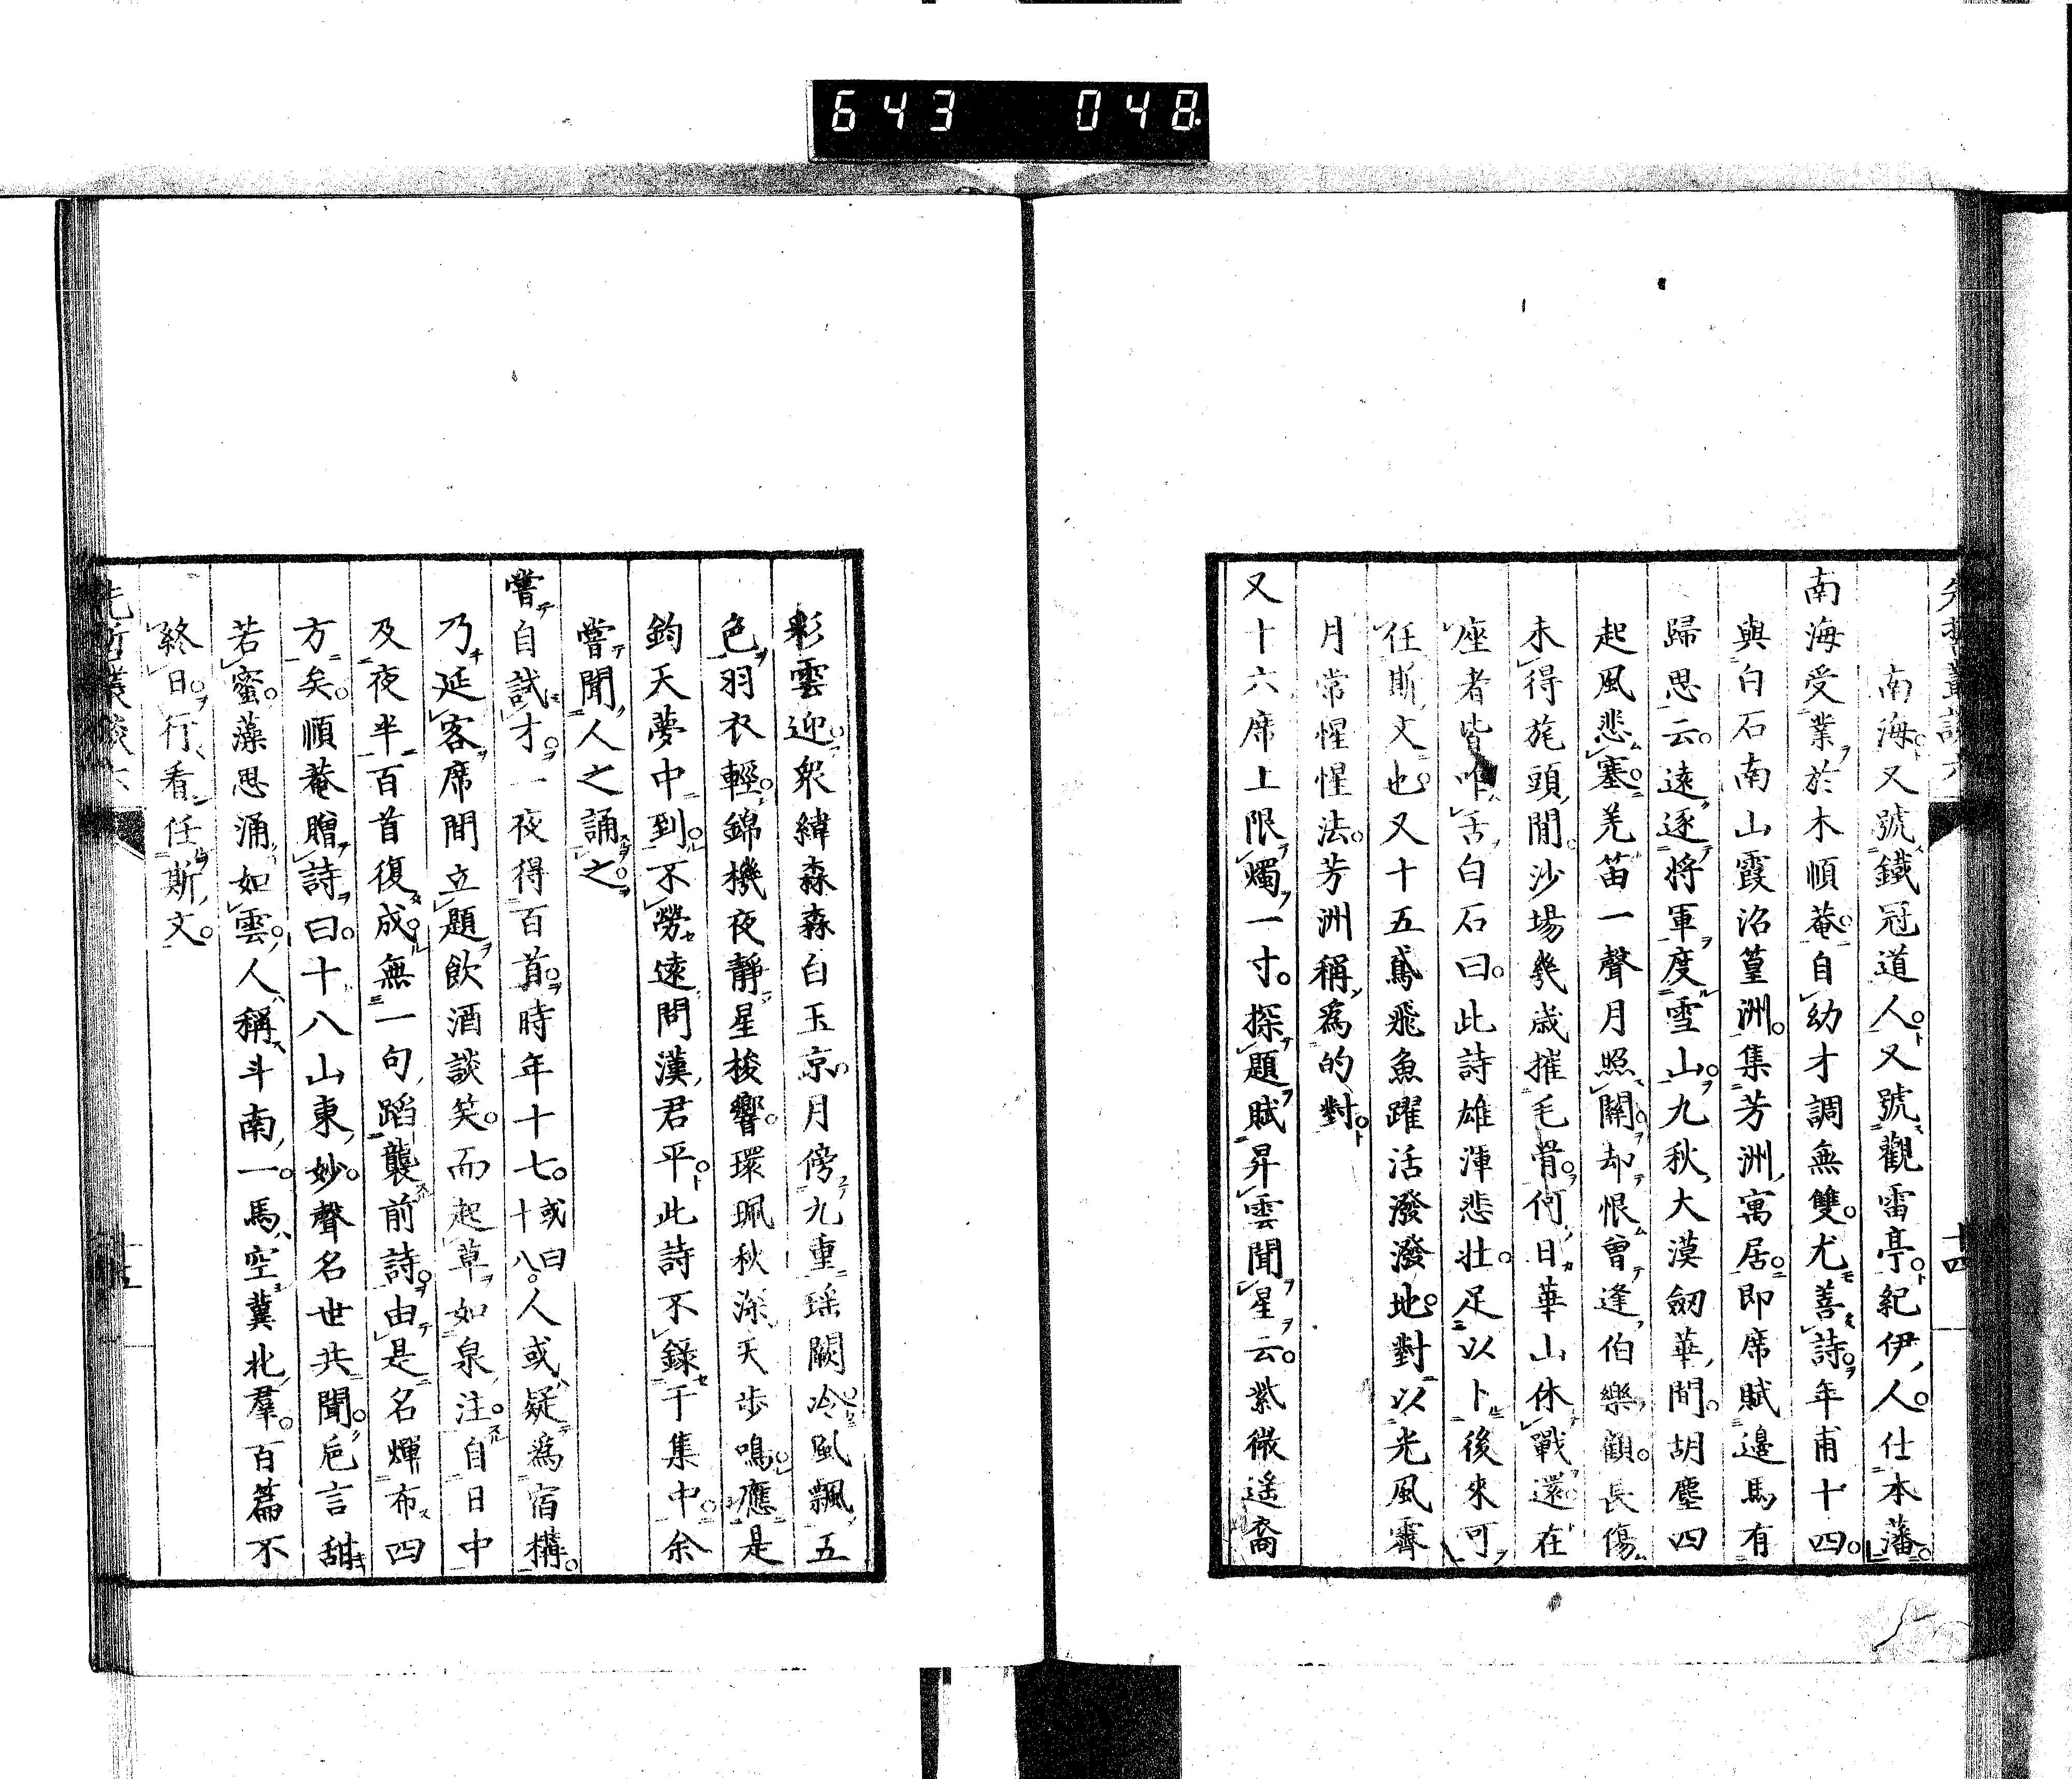 643 048
南海又號鐵冠道人又號觀雷亭紀伊人仕本藩
南海受業於木順菴自幼才調無雙尤善詩年甫十四
與白石南山霞沼篁洲集芳洲寓居即席賦邊馬有
歸思云遠逐將軍度雪山九秋大漠劒華間胡塵四
起風悲塞羌笛一聲月照關却恨曾逢伯樂顧長傷
未得旄頭閒沙場幾歳摧毛骨何日華山休戰還在
座者皆咋舌白石曰此詩雄渾悲壯足以卜後來可
任斯文也又十五鳶飛魚躍活潑潑地對以光風霽
月常惺惺法芳洲稱爲的對
又十六席上限燭一寸探題賦昇雲聞星云紫微遙裔
十四
彩雲迎衆緯森森白玉京月傍九重瑤闕冷風飄五
色羽衣輕錦機夜靜星梭響環珮秋深天步鳴應是
鈞天夢中到不勞遠問漢君平此詩不錄于集中余
嘗聞人之誦之
嘗自試才一夜得百首時年十七或曰十八人或疑爲宿構
乃延客席間立題飲酒談笑而起草如泉注自日中
及夜半百首復成無一句蹈襲前詩由是名燀布四
方矣順菴贈詩曰十八山東妙聲名世共聞巵言甜
若蜜藻思涌如雲人稱斗南一馬空冀北羣百篇不
終日行看任斯文
先哲叢談六